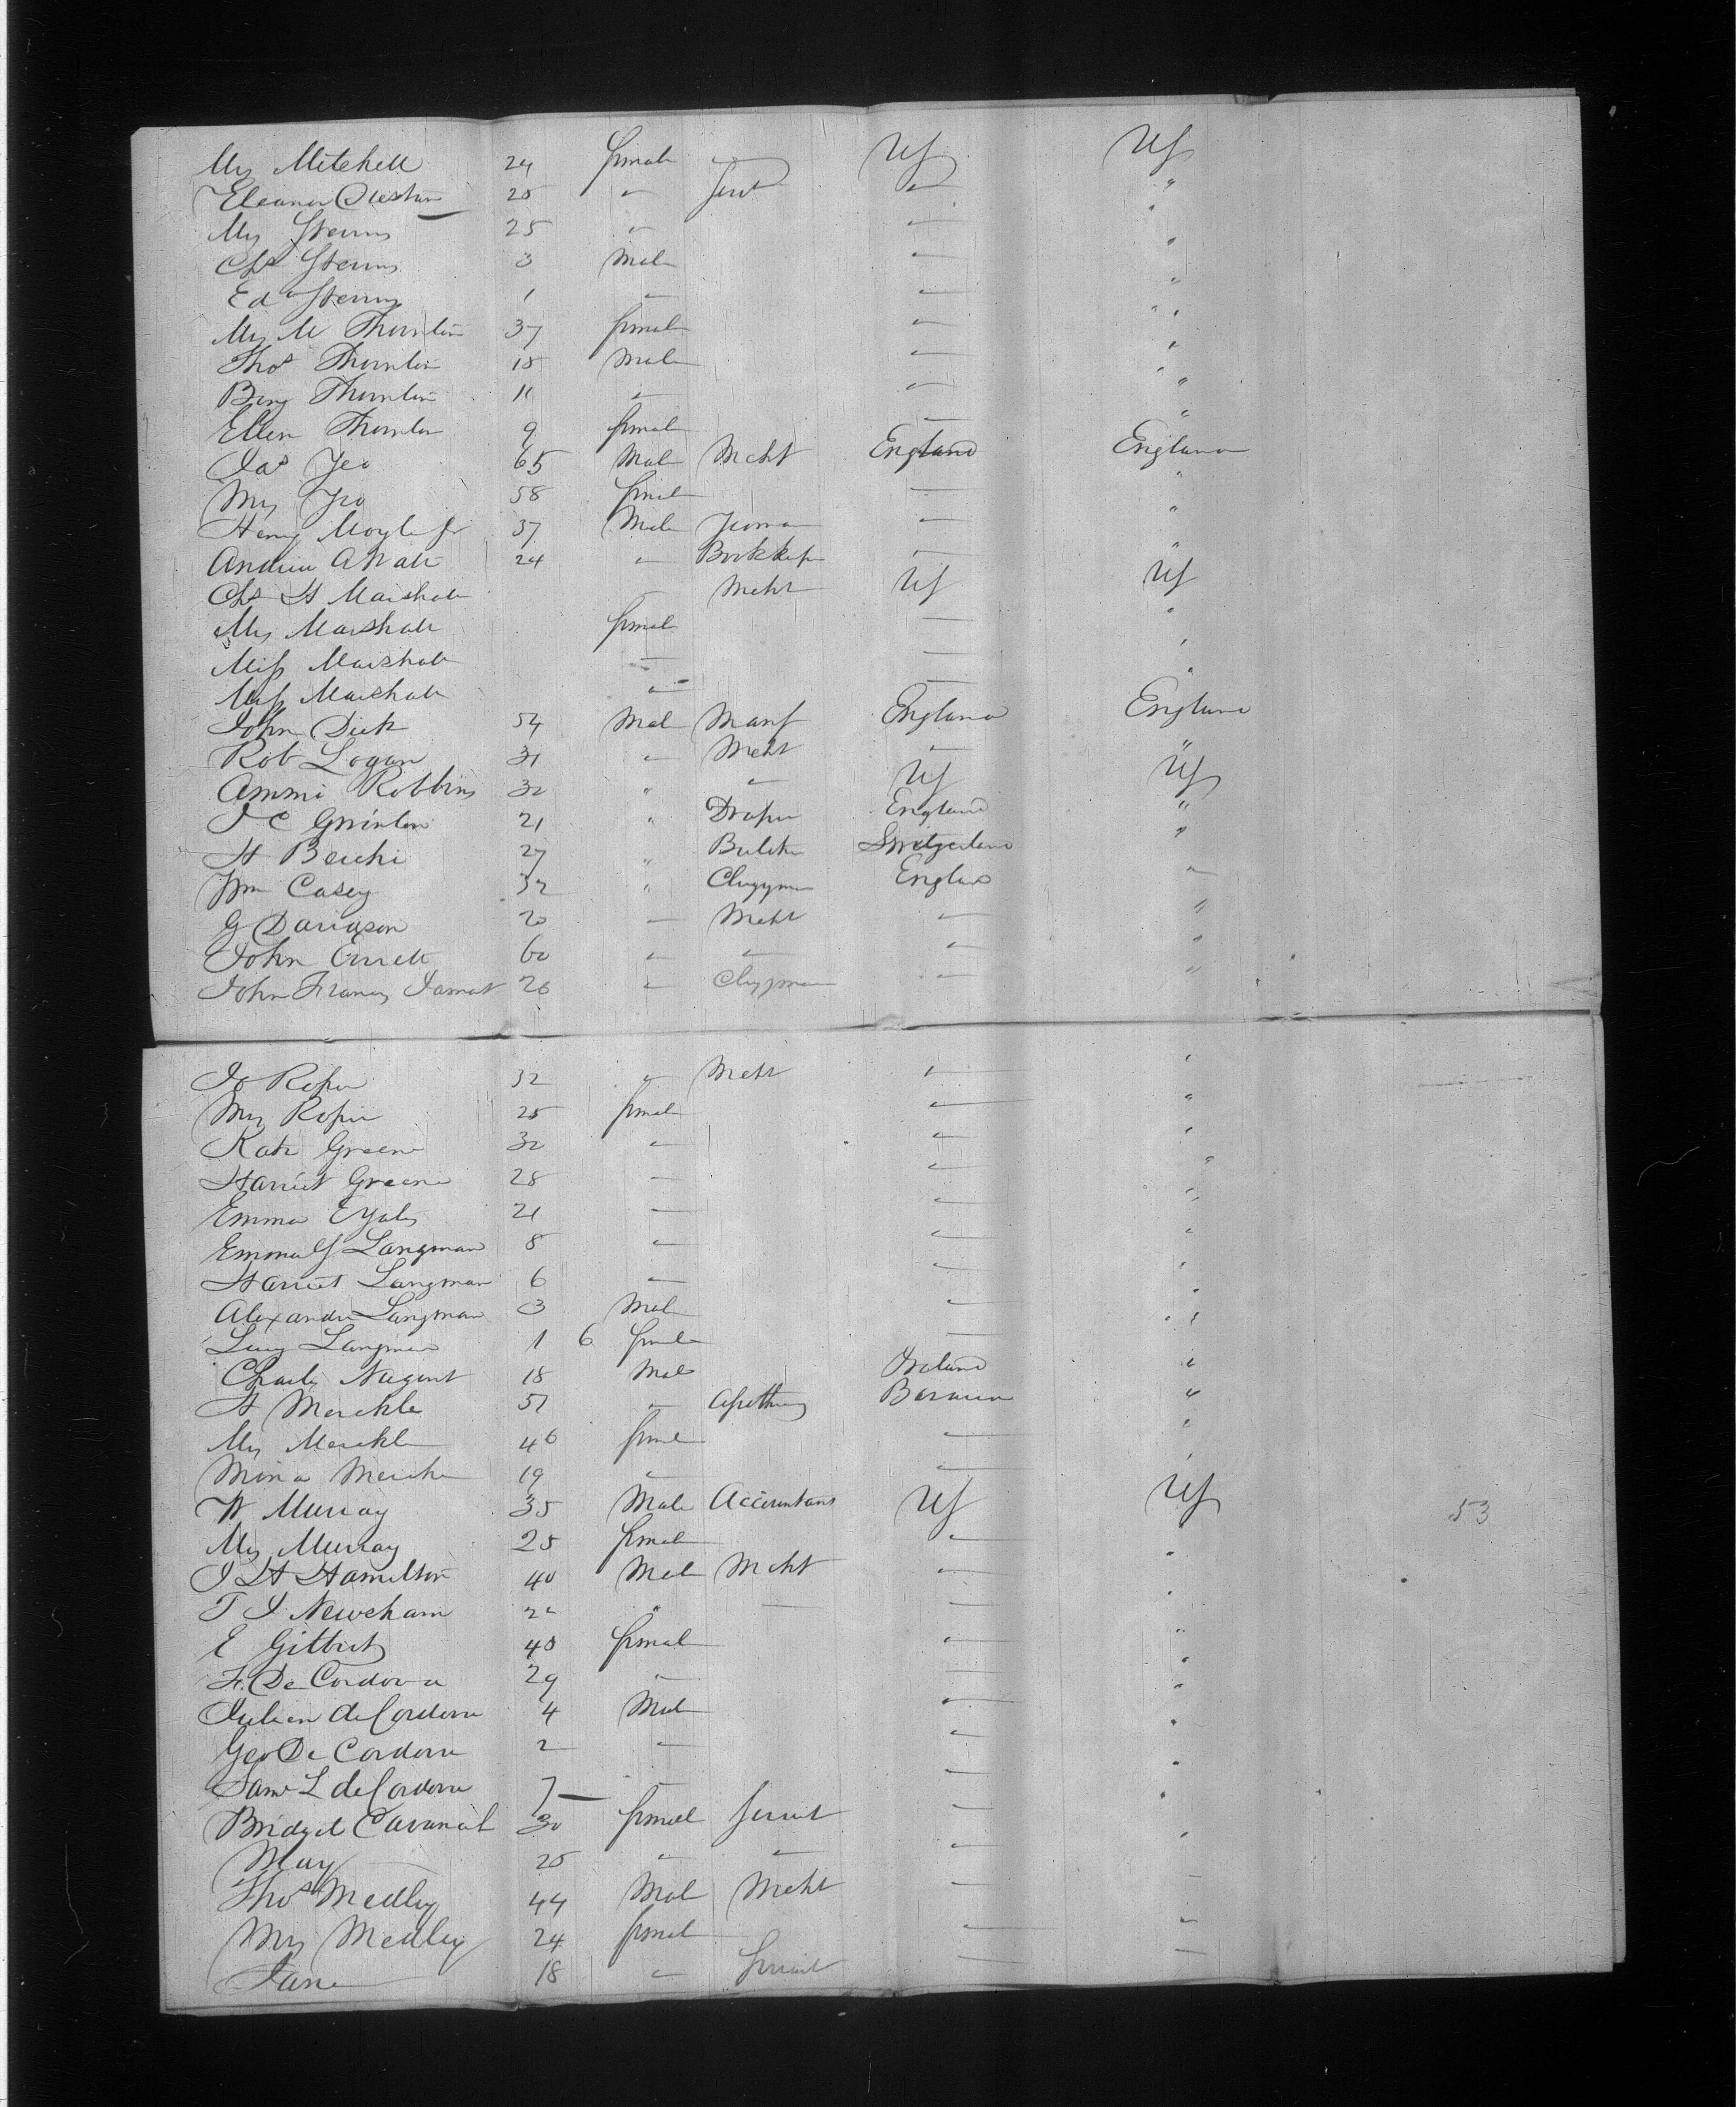 Mrs Mitchell 24 female — US US
Eleanor 25 " Servt " "
Mrs Sterns 25 " " "
Chs Sterns 3 Male " "
Ed Sterns 1 " " "
Mrs M Thornton 37 female " "
Thos Thornton 15 Male " "
Benj Thornton 11 " " "
Ellen Thornton 9 female " "
Jas Yeo 65 Male Mcht England England
Mrs Yeo 58 female — "
Henry Moyle Jr 37 Male — "
Andrew 24 " Bookkeper " "
Chs H Marshall Mcht US US
Mrs Marshall female — "
Miss Marshall — — "
Miss Marshall " — "
John Dick 54 Male Manf England England
Rob Logan 31 " Mcht " "
Ammi Robbins 32 " " US US
J C 21 " Draper England "
H 27 " Switzerland "
Wm Casey 32 " Clergyman England "
G Davidson 20 — Mcht — "
John 60 " " " "
John Francis 26 " Clergyman " "
Jo Roper 32 " Mcht " "
Mrs Roper 25 female " "
Kate Greene 32 " " "
Harriet Greene 28 — " "
Emma E Yates 21 — " "
Emma Langman 8 " " "
Harriet Langman 6 " " "
Alexander Langman 3 Male " "
Lucy Langman 1 6 female —
Charles Nugent 18 Male Ireland "
H Merckle 51 " Apothecary Bavaria "
Mrs Merckle 46 female " "
Mina Merckle 19 " " "
W Murray 35 Male Accountant US US 53
Mrs Murray 25 female " "
J H Hamilton 40 Male Mcht " "
T J Newsham 22 " — — "
E Gilbert 40 female " "
F. De Cordova 29 " — "
Julian de Cordova 4 Male " "
Geo De Cordova 2 " " "
Saml L de Cordova 7 — — "
Bridget Cavanah 30 female Servnt — "
Mary 25 " " " "
Thos Medley 44 Male Mcht " —
Mrs Medley 24 female — "
Jane 18 " Servant — —